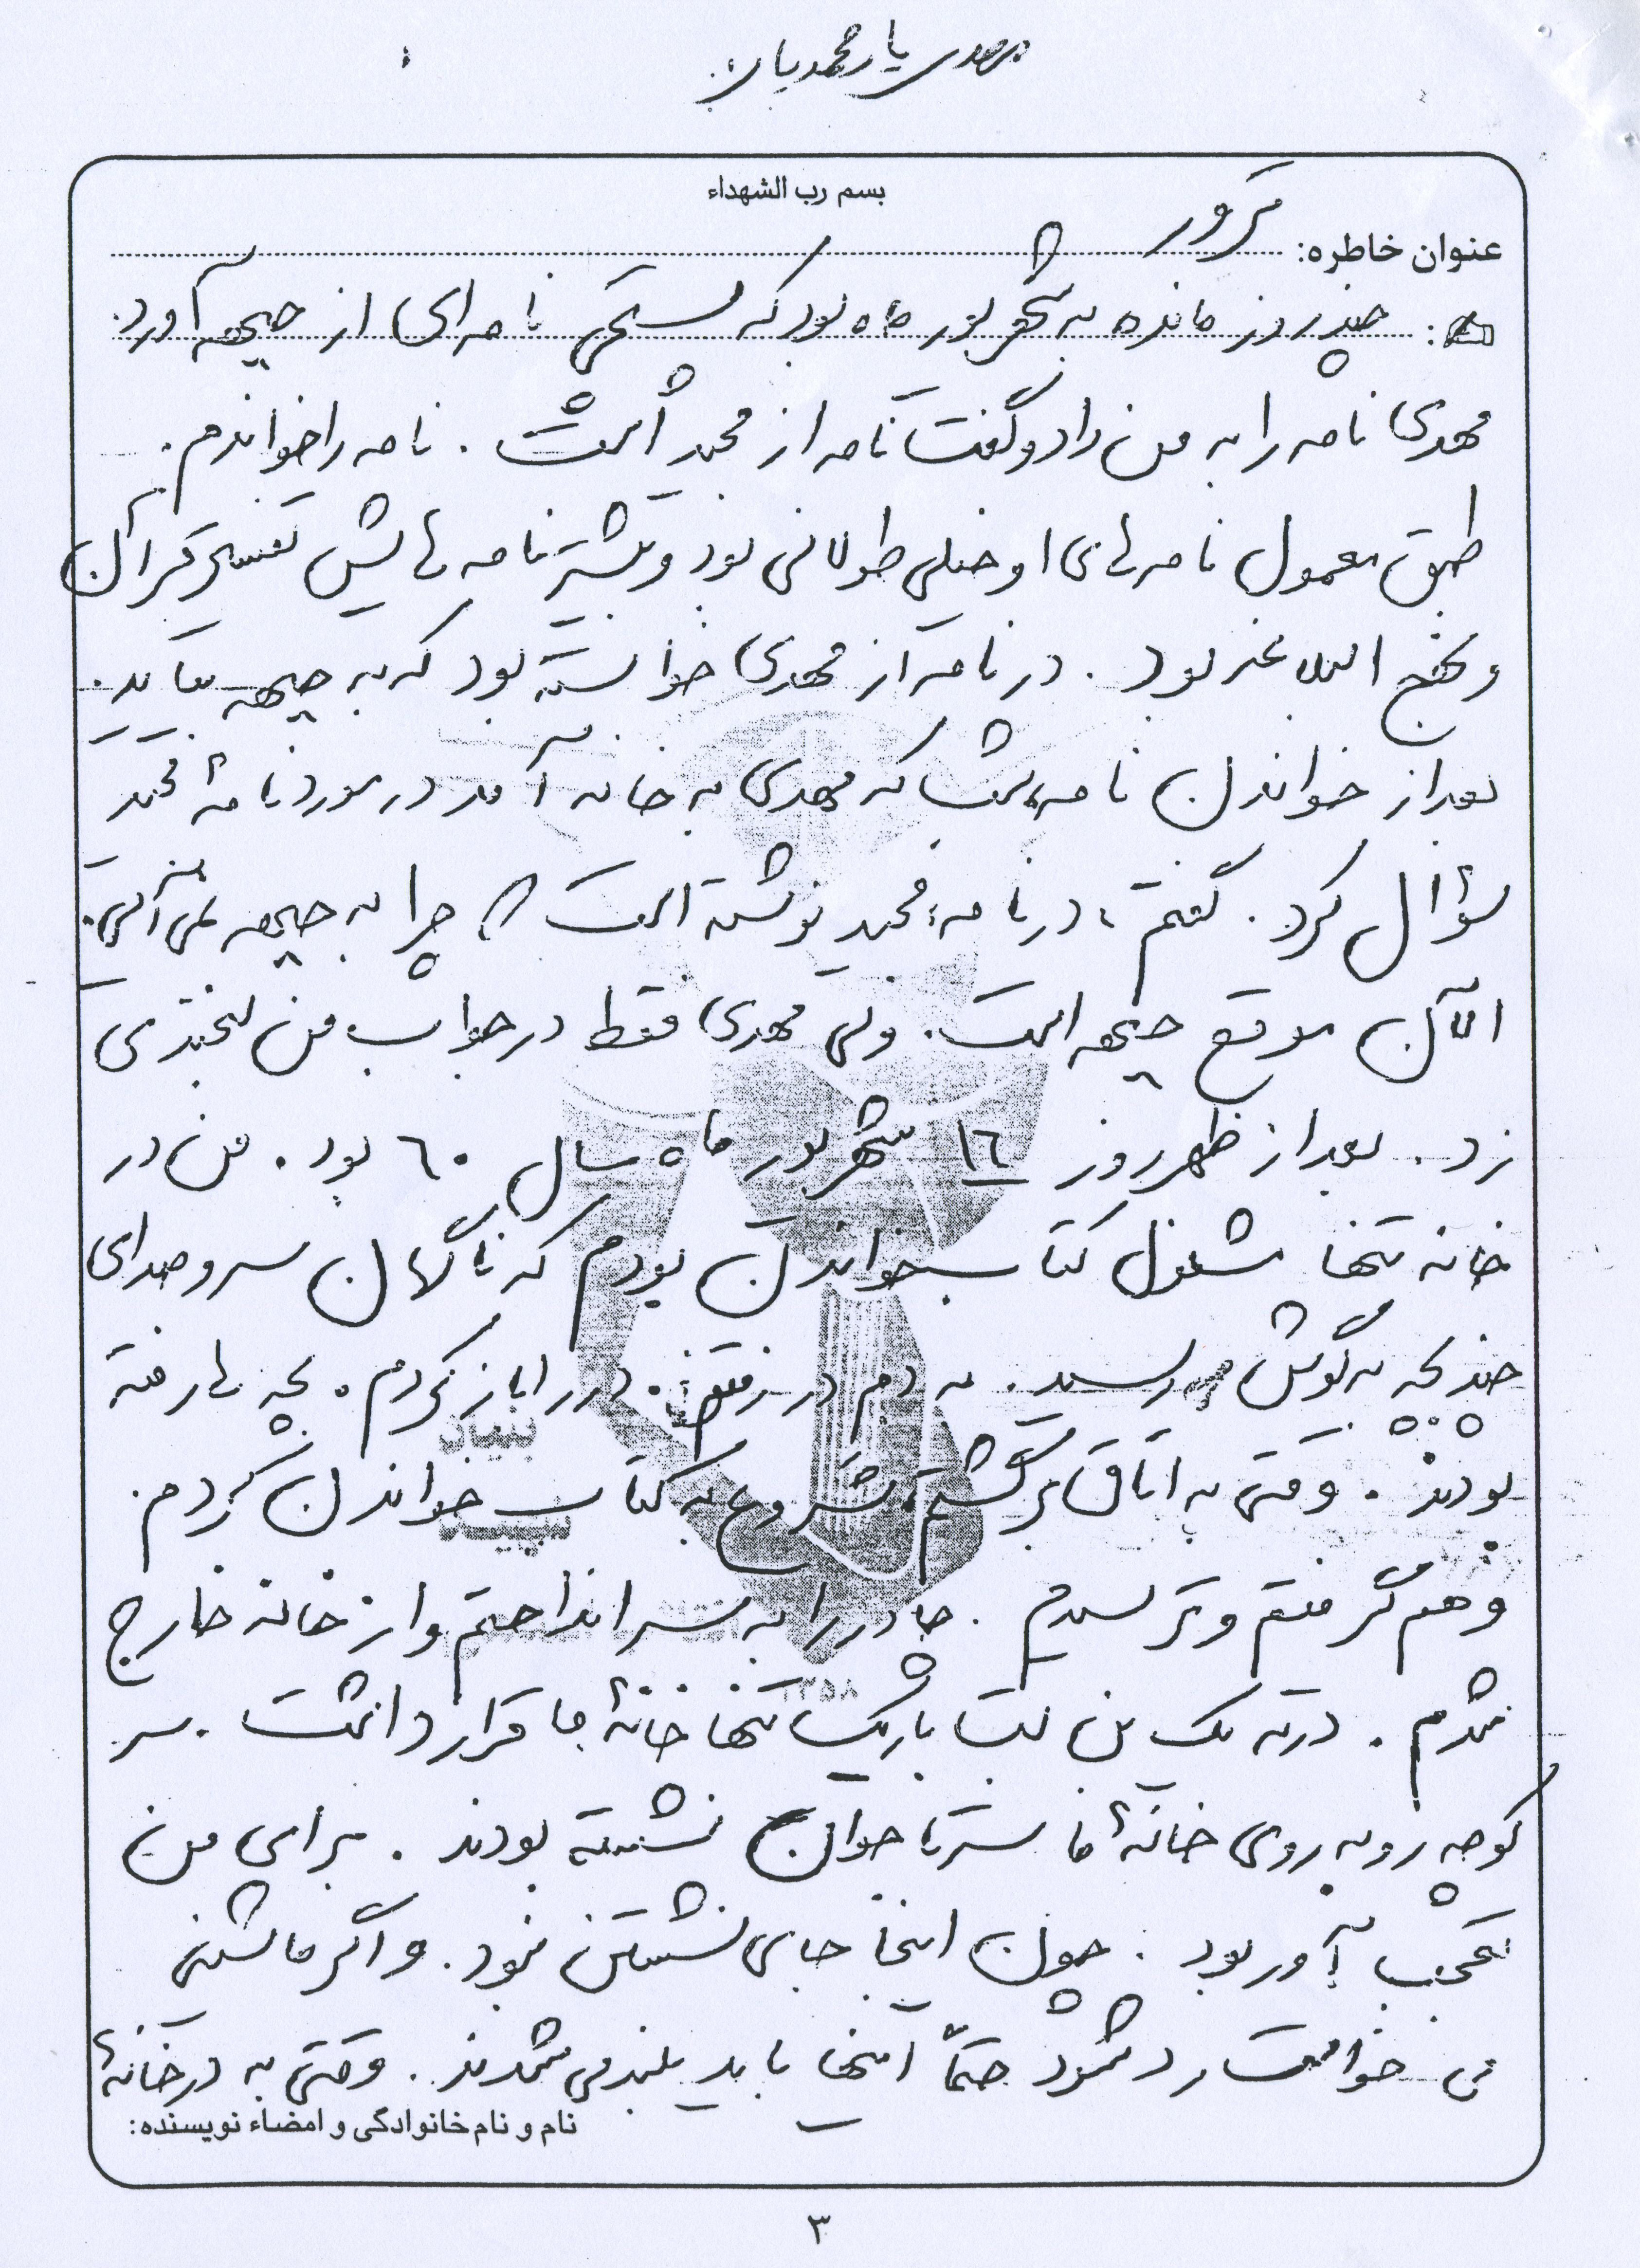 مهدی یارمحمدیان
بسم رب الشهداء
عنوان خاطره: ترور
چند روز مانده به شهریور ماه بود که پستچی نامه‌ای از جبهه آورد.
مهدی نامه را به من داد و گفت نامه از مجید است. نامه را خواندم.
طبق معمول نامه‌های او خیلی طولانی بود و بیشتر نامه‌هایش تفسیر قرآن
و نهج البلاغه بود. در نامه از مهدی خواسته بود که به جبهه بیاید.
بعد از خواندن نامه، شب که مهدی به خانه آمد در مورد نامهٔ مجید
سؤال کرد. گفتم، در نامه، مجید نوشته است که چرا به جبهه نمی‌آئی.
الآن موقع جبهه است. ولی مهدی فقط در جواب من لبخندی
زد. بعد از ظهر روز ١٦ شهریور ماه سال ٦٠ بود. من در
خانه تنها مشغول کتاب خواندن بودم که ناگهان سر و صدای
چند بچه به گوش رسید. به دم در رفتم. در را باز کردم. بچه‌ها رفته
بودند. وقتی به اتاق برگشتم، شروع به کتاب خواندن کردم.
وهم گرفتم و ترسیدم. چادر را به سر انداختم و از خانه خارج
شدم. در ته یک بن بست باریک تنها خانهٔ ما قرار داشت. سر
کوچه رو به روی خانهٔ ما سه تا جوان نشسته بودند. برای من
تعجب آور بود. چون اینجا جای نشستن نبود. و اگر ماشینی
می خواست رد شود حتماً اینها باید بلند می شدند. وقتی به در خانهٔ
نام و نام خانوادگی و امضاء نویسنده:
بنیاد
شهید
۱۳۵۸
۳